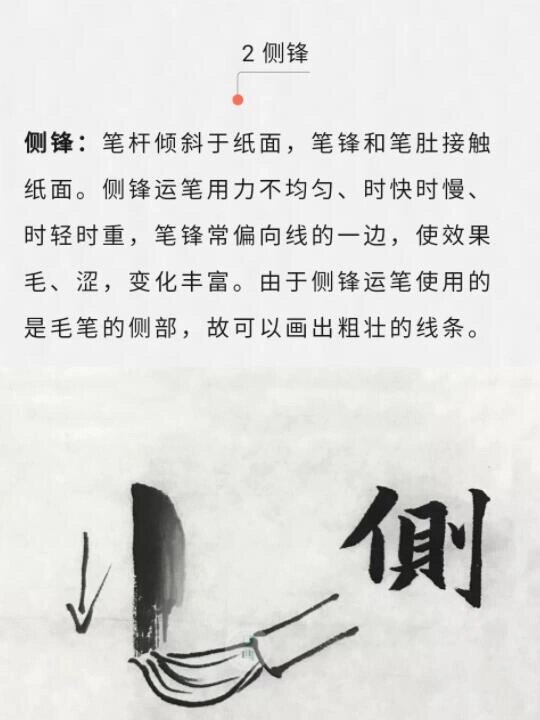 2 侧锋
侧锋：笔杆倾斜于纸面，笔锋和笔肚接触
纸面。侧锋运笔用力不均匀、时快时慢、
时轻时重，笔锋常偏向线的一边，使效果
毛、涩，变化丰富。由于侧锋运笔使用的
是毛笔的侧部，故可以画出粗壮的线条。
側